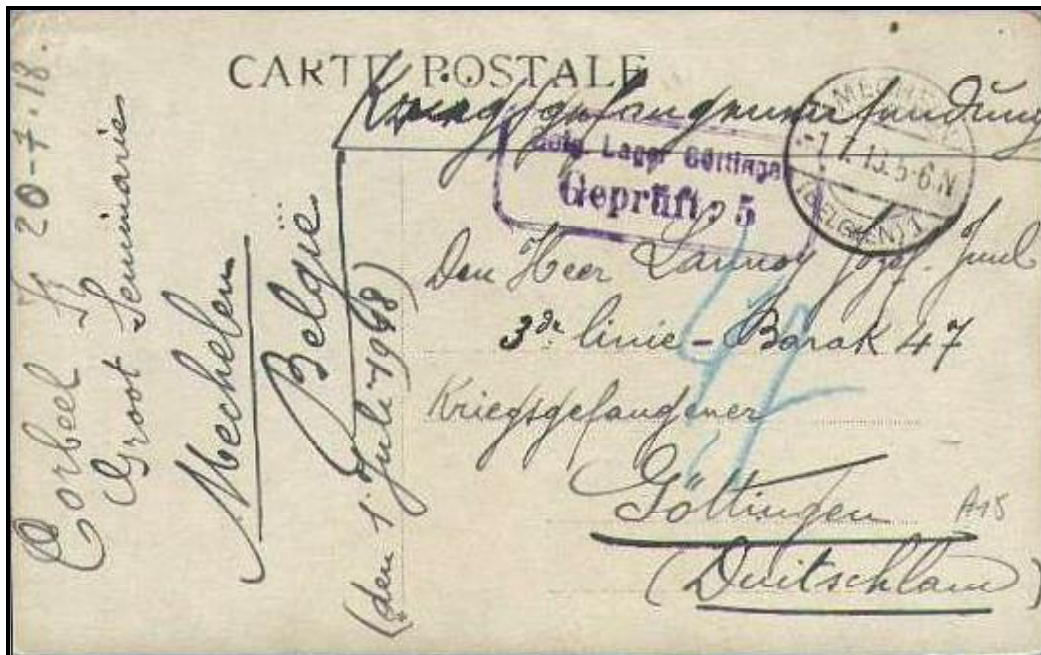 CARTE POSTALE
Kriegsgefangenensendung
Lager Göttingen
Geprüft: 5
MECHELEN
(BELGIEN) 1
Den Heer Lannoy Jozef.
3de linie - Barak 47
Kriegsgefangener
Göttingen
(Duitschland)
A15
20-7-18.
Corbeel
Groot Seminarie
Mechelen
België
(den 1. Juli 1918)